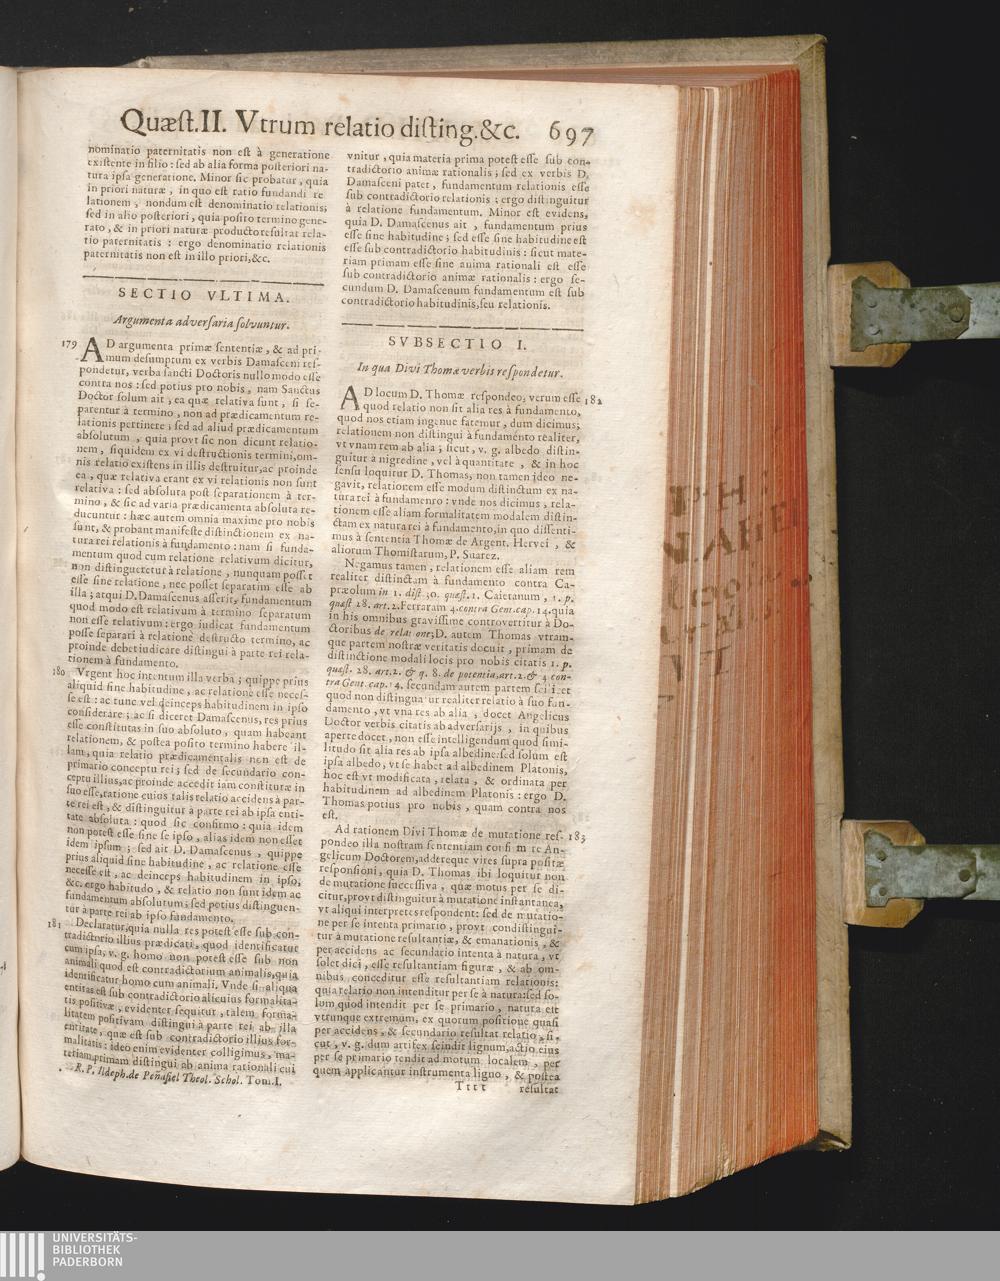 Quæst.II. Vtrum relatio disting.&c. 697
nominatio paternitatis non est à generatione
existente in filio : sed ab alia forma posteriori na-
tura ipsa generatione. Minor sic probatur, quia
in priori naturæ, in quo est ratio fundandi re
lationem, nondum est denominatio relationis;
sed in alio posteriori, quia posito termino gene-
rato, & in priori naturæ producto resultat rela-
tio paternitatis : ergo denominatio relationis
paternitatis non est in illo priori, &c.
SECTIO VLTIMA.
Argumenta adversaria solvuntur.
179 AD argumenta primæ sententiæ, & ad pri-
mum desumptum ex verbis Damasceni res-
pondetur, verba sancti Doctoris nullo modo esse
contra nos : sed potius pro nobis, nam Sanctus
Doctor solum ait ; ea quæ relativa sunt, si se-
parentur à termino, non ad prædicamentum re-
lationis pertinere ; sed ad aliud prædicamentum
absolutum, quia provt sic non dicunt relatio-
nem, siquidem ex vi destructionis termini, om-
nis relatio existens in illis destruitur, ac proinde
ea, quæ relativa erant ex vi relationis non sunt
relativa : sed absoluta post separationem à ter-
mino, & sic ad varia prædicamenta absoluta re-
ducuntur : hæc autem omnia maxime pro nobis
sunt, & probant manifeste distinctionem ex na-
tura rei relationis à fundamento : nam si funda-
mentum quod cum relatione relativum dicitur,
non distingueretur à relatione, nunquam posset
esse sine relatione, nec posset separatim esse ab
illa ; atqui D. Damascenus asserit, fundamentum
quod modo est relativum à termino separatum
non esse relativum : ergo iudicat fundamentum
posse separari à relatione destructo termino, ac
proinde debet iudicare distingui à parte rei rela-
tionem à fundamento.
180 Vrgent hoc intentum illa verba ; quippe prius
aliquid sine habitudine, ac relatione esse neces-
se est : ac tunc vel deinceps habitudinem in ipso
considerare ; ac si diceret Damascenus, res prius
esse constitutas in suo absoluto, quam habeant
relationem, & postea posito termino habere il-
lam, quia relatio prædicamentalis non est de
primario conceptu rei ; sed de secundario con-
ceptu illius, ac proinde accedit iam constitutæ in
suo esse, ratione cuius talis relatio accidens à par-
te rei est, & distinguitur à parte rei ab ipsa enti-
tate absoluta : quod sic confirmo : quia idem
non potest esse sine se ipso, alias idem non esset
idem ipsum ; sed ait D. Damascenus, quippe
prius aliquid sine habitudine, ac relatione esse
necesse est, ac deinceps habitudinem in ipso,
&c. ergo habitudo, & relatio non sunt idem ac
fundamentum absolutum ; sed potius distinguen-
tur à parte rei ab ipso fundamento.
181 Declaratur, quia nulla res potest esse sub con-
tradictorio illius prædicati, quod identificatur
cum ipsa, v. g. homo non potest esse sub non
animali quod est contradictorium animalis, quia
identificatur homo cum animali. Vnde si aliqua
entitas est sub contradictorio alicuius formalita-
tis positivæ, evidenter sequitur, talem forma-
litatem positivam distingui à parte rei ab illa
entitate, quæ est sub contradictorio illius for-
malitatis : ideo enim evidenter colligimus, ma-
teriam primam distingui ab anima rationali cui
R. P. Ildeph. de Peñafiel Theol. Schol. Tom.I.
vnitur, quia materia prima potest esse sub con-
tradictorio animæ rationalis ; sed ex verbis D.
Damasceni patet, fundamentum relationis esse
sub contradictorio relationis : ergo distinguitur
à relatione fundamentum. Minor est evidens,
quia D. Damascenus ait, fundamentum prius
esse sine habitudine ; sed esse sine habitudine est
esse sub contradictorio habitudinis : sicut mate-
riam primam esse sine anima rationali est esse
sub contradictorio animæ rationalis : ergo se-
cundum D. Damascenum fundamentum est sub
contradictorio habitudinis, seu relationis.
SVBSECTIO I.
In qua Divi Thomæ verbis respondetur.
AD locum D. Thomæ respondeo, verum esse 182
quod relatio non sit alia res à fundamento,
quod nos etiam ingenue fatemur, dum dicimus;
relationem non distingui à fundamento realiter,
vt vnam rem ab alia ; sicut, v. g. albedo distin-
guitur à nigredine, vel à quantitate, & in hoc
sensu loquitur D. Thomas, non tamen ideo ne-
gavit, relationem esse modum distinctum ex na-
tura rei à fundamento : vnde nos dicimus, rela-
tionem esse aliam formalitatem modalem distin-
ctam ex natura rei à fundamento, in quo dissenti-
mus à sententia Thomæ de Argent. Hervei, &
aliorum Thomistarum, P. Suarez.
Negamus tamen, relationem esse aliam rem
realiter distinctam à fundamento contra Ca-
præolum in 1. dist. 30. quæst. 1. Caietanum, 1. p.
quæst 28. art. 2. Ferraram 4. contra Gent. cap. 14. quia
in his omnibus gravissime controvertitur à Do-
ctoribus de relatione; D. autem Thomas vtram-
que partem nostræ veritatis docuit, primam de
distinctione modali locis pro nobis citatis 1. p.
quæst. 28. art. 2. & q. 8. de potentia, art. 2. & 4 con-
tra Gent. cap. 14. secundam autem partem scilicet
quod non distinguatur realiter relatio à suo fun-
damento, vt vna res ab alia, docet Angelicus
Doctor verbis citatis ab adversarijs, in quibus
aperte docet, non esse intelligendum quod simi-
litudo sit alia res ab ipsa albedine: sed solum est
ipsa albedo, vt se habet ad albedinem Platonis,
hoc est vt modificata, relata, & ordinata per
habitudinem ad albedinem Platonis : ergo D.
Thomas potius pro nobis, quam contra nos
est.
Ad rationem Divi Thomæ de mutatione res- 183
pondeo illa nostram sententiam confirmare An-
gelicum Doctorem, addereque vires supra positæ
responsioni, quia D. Thomas ibi loquitur non
de mutatione successiva, quæ motus per se di-
citur, provt distinguitur à mutatione instantanea,
vt aliqui interpretes respondent: sed de mutatio-
ne per se intenta primario, provt condistingui-
tur à mutatione resultantiæ, & emanationis, &
per accidens ac secundario intenta à natura, vt
solet dici, esse resultantiam figuræ, & ab om-
nibus conceditur esse resultantiam relationis:
quia relatio non intenditur per se à natura: sed so-
lum quod intendit per se primario, natura est
vtrunque extremum, ex quorum positione quasi
per accidens, & secundario resultat relatio, si-
cut, v. g. dum artifex scindit lignum, actio eius
per se primario tendit ad motum localem, per
quem applicantur instrumenta ligno, & postea
Tttt resultat
UNIVERSITÄTS-
BIBLIOTHEK
PADERBORN